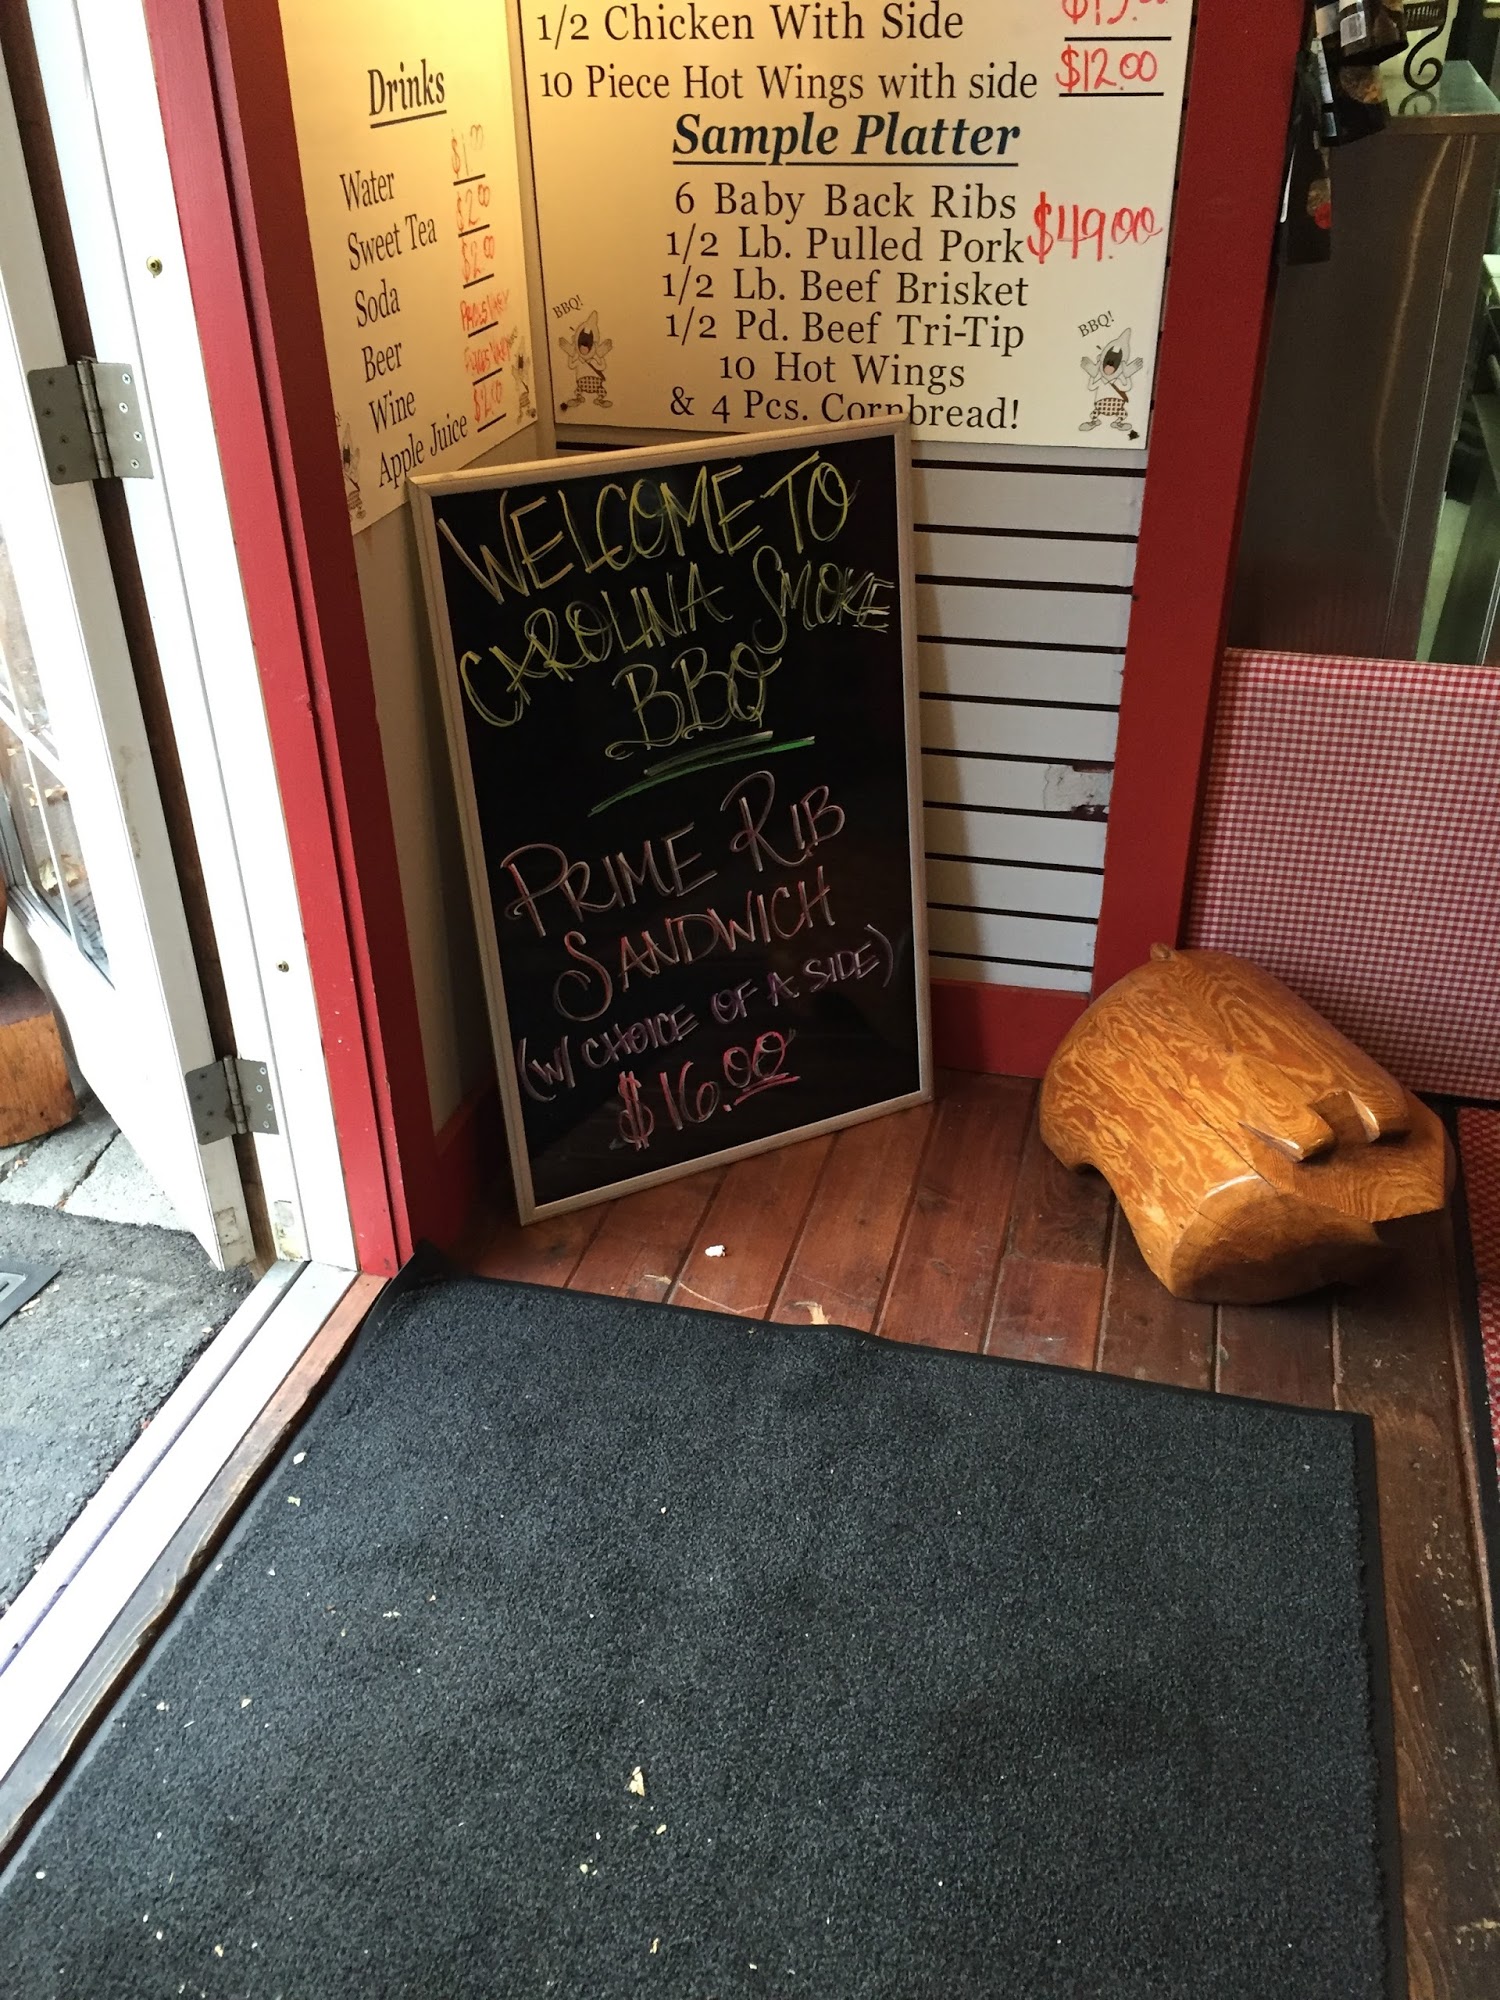 Drinks
Water $1.00
Sweet Tea $2.00
Soda $2.00
Beer PRICES VARY
Wine PRICES VARY
Apple Juice $2.00
1/2 Chicken With Side
10 Piece Hot Wings with side $12.00
Sample Platter
6 Baby Back Ribs
1/2 Lb. Pulled Pork $49.00
1/2 Lb. Beef Brisket
1/2 Pd. Beef Tri-Tip
10 Hot Wings
& 4 Pcs. Cornbread!
BBQ!
BBQ!
WELCOME TO
CAROLINA SMOKE
BBQ
PRIME RIB
SANDWICH
(W/ CHOICE OF A SIDE)
$16.00